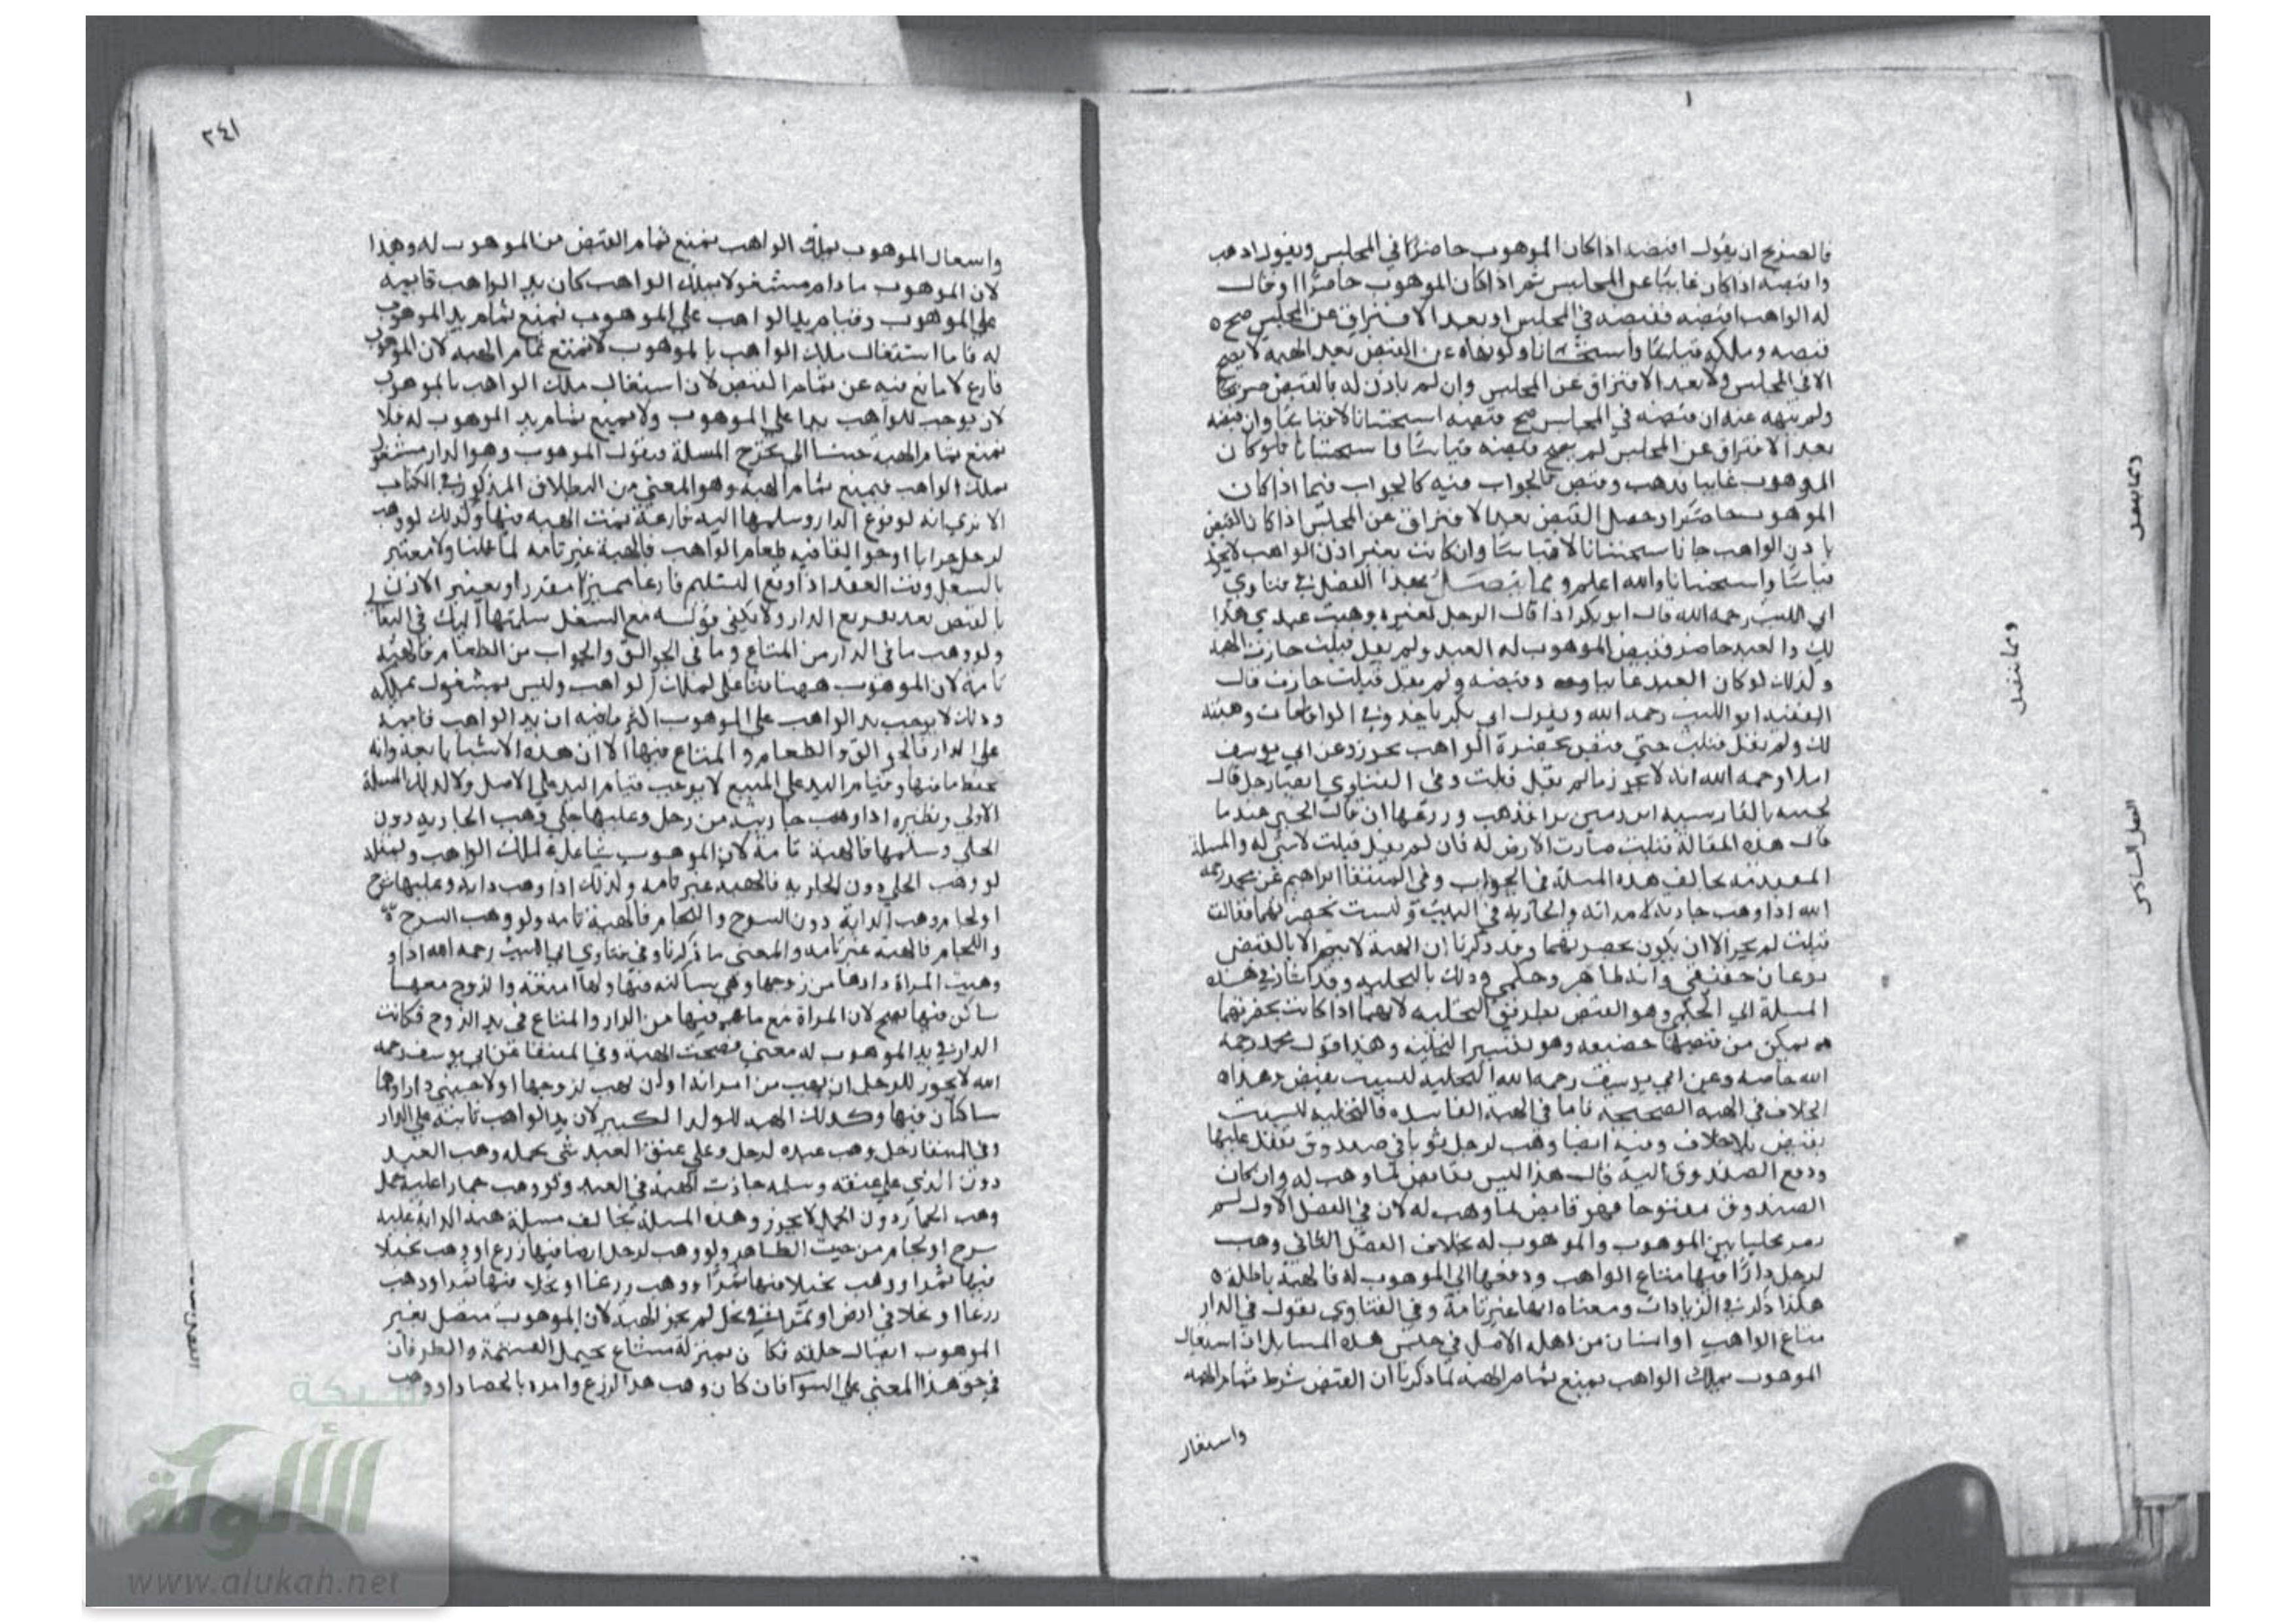 فالصريح ان يقول اقبضه اذا كان الموهوب حاضرًا في المجلس ويقول اذهب
واقبضه اذا كان غائبًا عن المجلس ثم اذا كان الموهوب حاضرًا وقال
له الواهب اقبضه فقبضه في المجلس او بعد الافتراق عن المجلس صح
قبضه وملكه قياسًا واستحسانا ولو نهاه عن القبض بعد الهبة لا يصح
لا في المجلس ولا بعد الافتراق عن المجلس وان لم ياذن له بالقبض صريحًا
ولم ينهه عنه ان قبضه في المجلس صح قبضه استحسانا لا قياسًا وان قبضه
بعد الافتراق عن المجلس لم يصح قبضه قياسًا واستحسانا فلو كان
الموهوب غايبا فذهب وقبض فالجواب فيه كالجواب فيما اذا كان
الموهوب حاضرا وحصل القبض بعد الافتراق عن المجلس اذا كان القبض
باذن الواهب جاز استحسانا لا قياسًا وان كانت بغير اذن الواهب لا يجوز
قياسًا واستحسانا والله اعلم ومما يتصل بهذا الفصل في فتاوي
ابي الليث رحمه الله قال ابو بكر اذا قال الرجل لغيره وهبت عبدي هذا
لك والعبد حاضر فقبض الموهوب له العبد ولم يقل قبلت جازت الهبة
وكذلك لو كان العبد غائبا وقبضه ولم يقل قبلت جازت قال
الفقيه ابو الليث رحمه الله وبقول ابي بكر ناخذ وفي الواقعات وهبته
لك ولم يقل قبلت حتى قبض بحضرة الواهب يجوز وعن ابي يوسف
رحمه الله انه لا يجوز ما لم يقل قبلت وفي الفتاوي ايضا رجل قال
لختنه بالفارسية اين زمين ترا فذهب وزرعها ان قال الختن عندما
قال هذه المقالة قبلت صارت الارض له فان لم يقل قبلت لا شي له والمسلة
المتقدمة تخالف هذه المسلة في الجواب وفي المنتقا ابراهيم عن محمد رحمه
الله اذا وهب جارية لامراته والجارية في البيت وليست بحضرتهما فقالت
قبلت لم يجز الا ان يكون بحضرتهما وقد ذكرنا ان الهبة لا تتم الا بالقبض
نوعان حقيقي وانه ظاهر وحكمي وذلك بالتخلية وقد اشار في هذه
المسلة الي الحكمي وهو القبض بطريق التخلية لانهما اذا كانت بحضرتهما
يمكن من قبضها وهو تفسير التخلية وهذا قول محمد رحمه
الله خاصة وعن ابي يوسف رحمه الله التخلية ليست بقبض وهذا
الخلاف في الهبة الصحيحة فاما في الهبة الفاسدة فالتخلية ليست
بقبض بلا خلاف وفيه ايضا وهب لرجل ثوبا في صندوق مقفل عليها
ودفع الصندوق اليه قال هذا ليس بقابض لما وهب له وان كان
الصندوق مفتوحا فهو قابض لما وهب له لان في الفصل الاول لم
يصر مخليا بين الموهوب والموهوب له بخلاف الفصل الثاني وهب
لرجل دارًا فيها متاع الواهب ودفعها الي الموهوب له فالهبة باطلة
هكذا ذكر في الزيادات ومعناه انها غير تامة وفي الفتاوي يقول في الدار
متاع الواهب او انسان من اهله الاصل في جنس هذه المسايل ان اشتغال
الموهوب بملك الواهب يمنع تمام الهبة لما ذكرنا ان القبض شرط تمام الهبة
واشتغال
ومما يتصل
الفصل السادس
٢٤١
واشتغال الموهوب بملك الواهب يمنع تمام القبض من الموهوب له وهذا
لان الموهوب ما دام مشغولا بملك الواهب كان يد الواهب قايمة
علي الموهوب وقيام يد الواهب علي الموهوب يمنع تمام يد الموهوب
له فاما اشتغال ملك الواهب بالموهوب لا يمنع تمام الهبة لان الموهوب
فارغ لا مانع فيه عن تمام القبض لان اشتغال ملك الواهب بالموهوب
لا يوجب للواهب يدا علي الموهوب ولا يمنع تمام يد الموهوب له فلا
يمنع تمام الهبة جينا الي تخرج المسلة فنقول الموهوب وهو الدار مشغول
بملك الواهب فيمنع تمام الهبة وهو المعني من البطلان المذكور في الكتاب
الا تري انه لو فرغ الدار وسلمها اليه فارغة تمت الهبة فيها وكذلك لو وهب
لرجل جرابا او جوالقا فيه طعام الواهب فالهبة غير تامة لما قلنا ولا معتبر
بالشغل وقت العقد اذا وقع التسليم فارغا ويعتبر الاذن
بالقبض بعد تفريغ الدار ولا يكفي قوله مع الشغل سلمتها اليك
ولو وهب ما في الدار من المتاع وما في الجوالق والجراب من الطعام فالهبة
تامة لان الموهوب ههنا شاغل لملك الواهب وليس بمشغول بملكه
وذلك لا يوجب يد الواهب علي الموهوب اكثر ما فيه ان يد الواهب قايمة
علي الدار والجوالق والطعام والمتاع فيها الا ان هذه الاشيا
الاولي ونظيره اذا وهب جارية من رجل وعليها حلي وهب الجارية دون
الحلي وسلمها فالهبة تامة لان الموهوب شاغل لملك الواهب وبمثله
لو وهب الحلي دون الجارية فالهبة غير تامة وكذلك اذا وهب دابة وعليها سرج
او لجام وهب الدابة دون السرج واللجام فالهبة تامة ولو وهب السرج
واللجام فالهبة غير تامة والمعني ما ذكرنا وفي فتاوي ابي الليث رحمه الله اذا
وهبت المراة دارها من زوجها وهي ساكنة فيها ولها امتعة والزوج معها
ساكن فيها يصح لان المراة مع ما هو فيها من الدار والمتاع في يد الزوج فكانت
الدار في يد الموهوب له معني فصحت الهبة وفي المنتقا عن ابي يوسف رحمه
الله لا يجوز للرجل ان يهب من امراته او ان تهب لزوجها او لاجنبي دارا وهما
ساكنان فيها وكذلك الهبة للولد الكبير لان يد الواهب ثابتة علي الدار
وفي المنتقا رجل وهب عبده لرجل وعلي عنق العبد شي يحمله وهب العبد
دون الذي علي عنقه وسلمه جازت الهبة في العبد ولو وهب حمارا عليه حمل
وهب الحمار دون الحمل لا يجوز وهذه المسلة تخالف مسلة هبة الدابة عليه
سرج او لجام من حيث الظاهر ولو وهب لرجل ارضا فيها زرع او وهب نخيلا
فيها ثمرا او وهب نخيلا فيها ثمرًا او وهب زرعا او نخلا فيها ثمرا او وهب
زرعا او نخلا في ارض او ثمرا في نخل لم يجز الهبة لان الموهوب متصل بغير
الموهوب اتصال خلقة فكان بمنزلة مشاع يحتمل القسمة والطرفان
في حق هذا المعني علي السوا فان كان وهب هذا الزرع وامره بالحصاد او وهب
شبكة
الألوكة
www.alukah.net